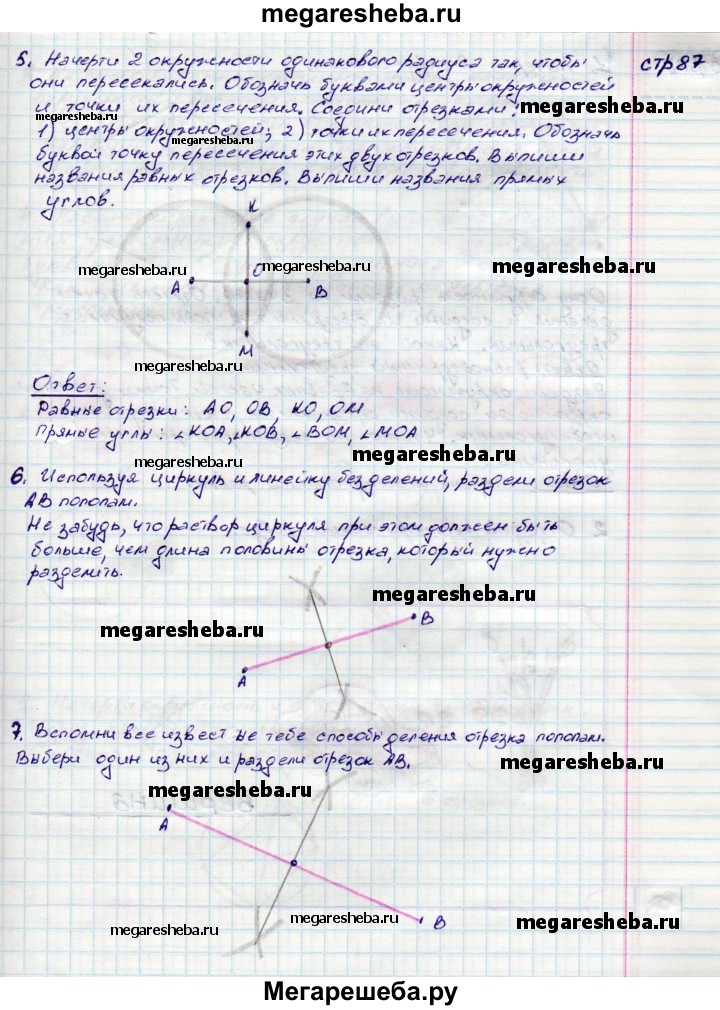 megaresheba.ru
стр 87
5. Начерти 2 окружности одинакового радиуса так, чтобы
они пересекались. Обозначь буквами центры окружностей
и точки их пересечения. Соедини отрезками:
megaresheba.ru
1) центры окружностей; 2) точки их пересечения. Обозначь
megaresheba.ru
буквой точку пересечения этих двух отрезков. Выпиши
названия равных отрезков. Выпиши названия прямых
megaresheba.ru
углов.
К
megaresheba.ru
О
megaresheba.ru
megaresheba.ru
А
В
М
megaresheba.ru
Ответ:
Равные отрезки: АО, ОВ, КО, ОМ
Прямые углы: ∠КОА, ∠КОВ, ∠ВОМ, ∠МОА
megaresheba.ru
megaresheba.ru
6. Используя циркуль и линейку без делений, раздели отрезок
АВ пополам.
Не забудь, что раствор циркуля при этом должен быть
больше, чем длина половины отрезка, который нужно
разделить.
megaresheba.ru
В
megaresheba.ru
А
7. Вспомни все извест ые тебе способы деления отрезка пополам.
Выбери один из них и раздели отрезок АВ.
megaresheba.ru
megaresheba.ru
А
В
megaresheba.ru
megaresheba.ru
megaresheba.ru
Мегарешеба.ру